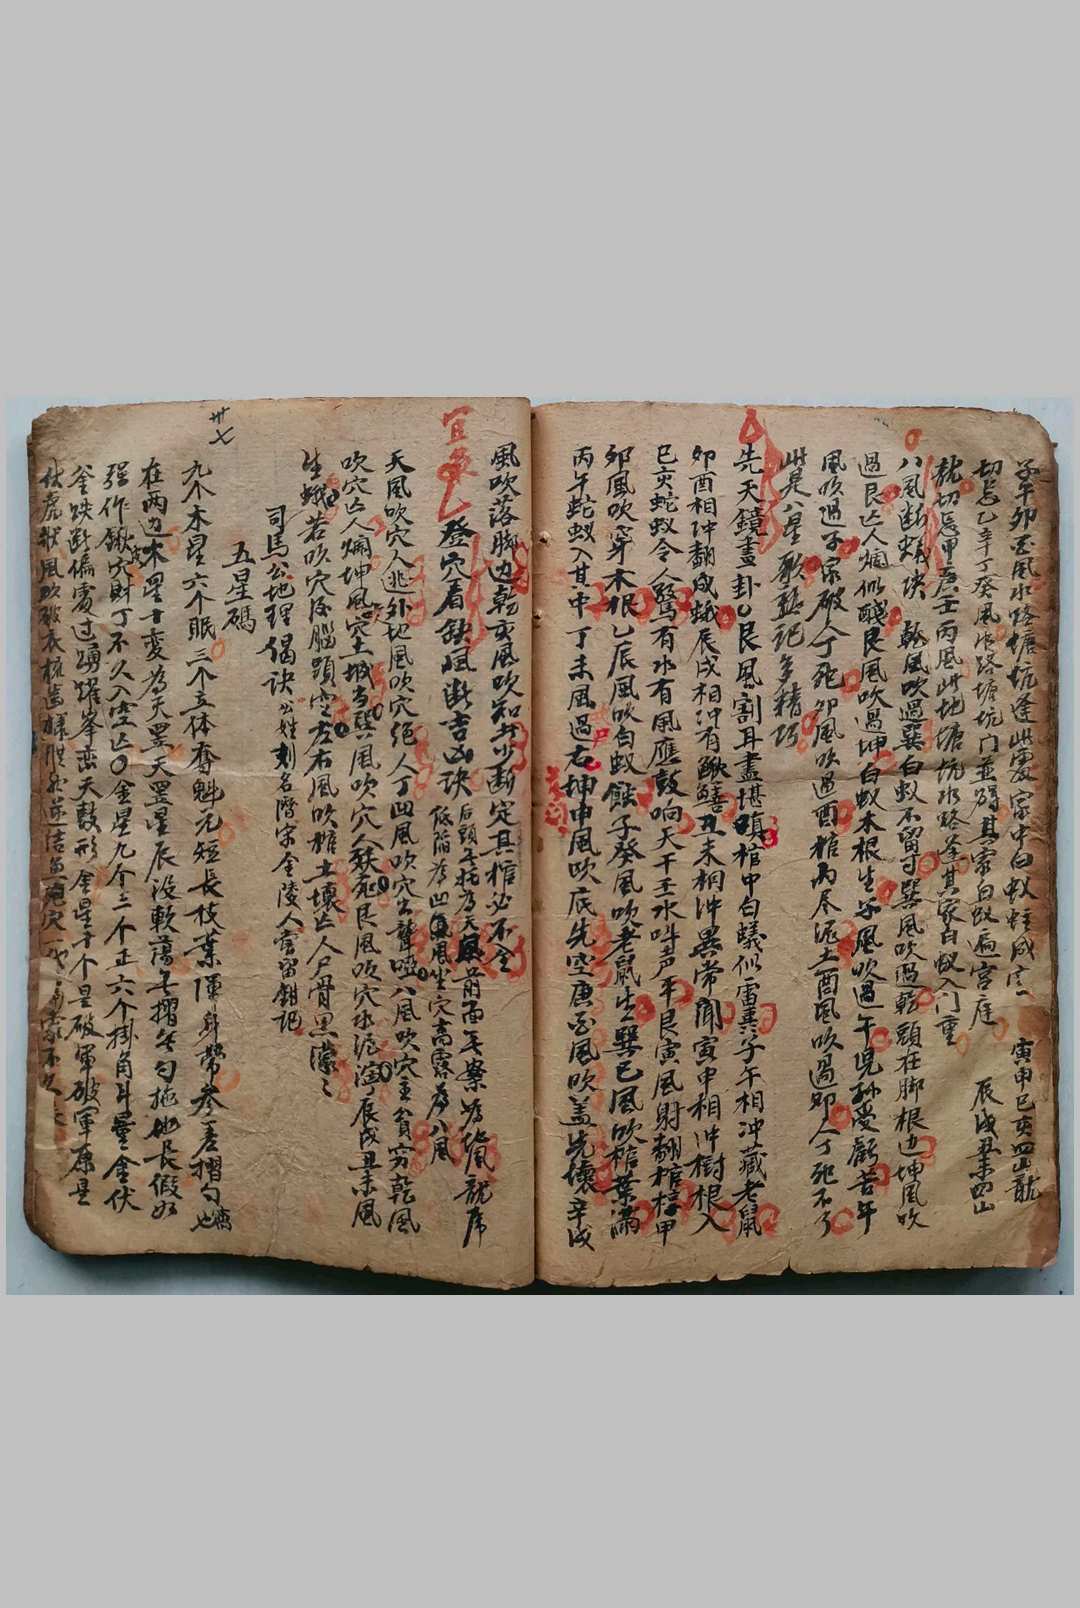 子午卯酉風水路塘坑逢此處家中白蚁蛀成
寅申巳亥四山龍
切忌乙辛丁癸風水路塘坑门並碍其家白蚁遍宫庭
辰戌丑未四山
龍切忌甲庚壬丙風此地塘坑水路逢其家白蚁入门重
八風断蟻块 乾風吹過巽白蚁不留寸巽風吹過乾頭在脚根边坤風吹
過艮亡人爛似醆艮風吹過坤白蚁木根生子風吹過午児孙受虧苦午
風吹過子家破人丁死卯風吹過酉棺内尽泥土酉風吹過卯人丁死不了
此是八星歌熟記多精巧
先天鏡畫卦艮風割耳盡堪嗔棺中白蟻似雷子午相冲藏老鼠
卯酉相冲翻成蛾辰戌相冲有鰍鱔丑未相冲異常聞寅申相冲樹根入
巳亥蛇蚁令人驚有水有風應鼓响天干壬水叫声平艮寅風射翻棺椁甲
卯風吹穿木根乙辰風吹白蚁蝕子癸風吹老鼠生巽巳風吹棺葉滿
丙午蛇蚁入其中丁未風過右坤申風吹底先空庚酉風吹盖先壞辛戌
風吹落脚边乾亥風吹知多少断定其棺必不全
登穴看缺風断吉凶訣
后頭无托为天風前面无案为地風龍虎
低陷为凹風坐穴高露为八風
天風吹穴人逃外地風吹穴绝人丁凹風吹穴出聾啞八風吹穴主貧穷乾風
吹穴亡人爛坤風穴土城当巽風吹穴人
死艮風吹穴水泥渲辰戌丑未風
生蛾若吹穴后腦頭空左右風吹棺土壞亡人尸骨黑濛々
司馬公地理偈訣
公姓刘名潛宋金陵人
五星碼
卅七
九个木星六个眠三个立体奪魁元短長枝葉
帶参差摺勾
在两边木星十变为天罡天罡星辰没軟蕩无摺无勾拖地長假如
强作鍬穴財丁不久入空亡〇金星九个三个正六个掛角斗量金伏
釜跌断偏處过踴躍峯峦天鼓形金星十个是破軍破軍原是
伏虎狀風吹破衣